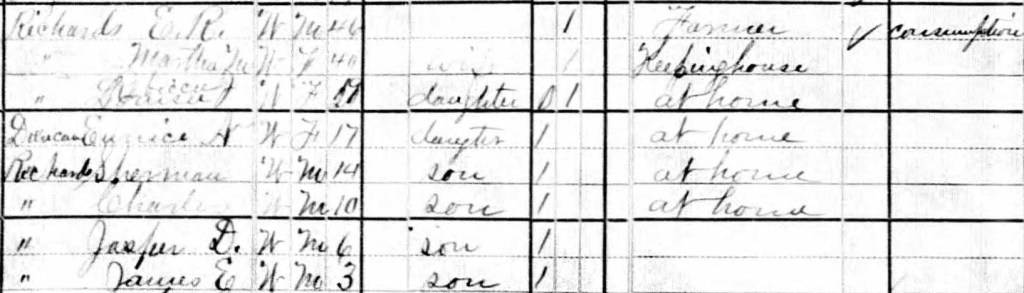 Richards E. R. W M 46 1 Farmer ✓ consumption
" Martha M W F 40 wife 1 Keeping house
" J W F 19 daughter 0 1 at home
Duncan Eunice A W F 17 daugter 1 at home
Richards Sherman W M 14 son 1 at home
" Charles W M 10 son 1 at home
" Jasper D. W M 6 son 1
" James E W M 3 son 1